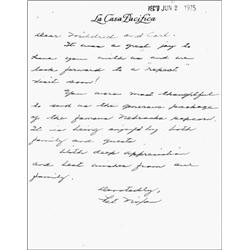 REC'D JUN 2 1975
La Casa Pacifica
Dear Mildred and Carl.
It was a great joy to
have you with us and we
look forward to a "repeat"
visit soon!
You were most thoughtful
to send us the generous package
of the famous Nebraska popcorn.
It is being enjoyed by both
family and guests.
With deep appreciation
and best wishes from our
family.
Devotedly,
Pat Nixon